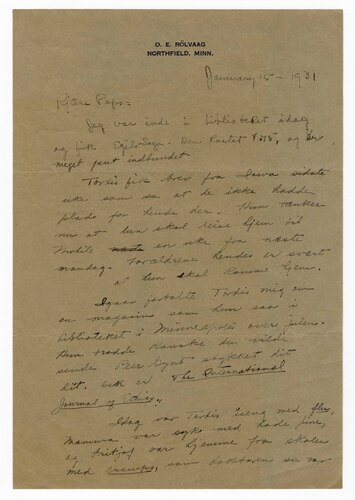 O. E. RÖLVAAG
NORTHFIELD, MINN.
January 15 - 1931
Kjære Papa:
Jeg var inde i biblioteket idag
og fik Egils Saga. Den kostet $ , og er
meget pent indbundet.
Tordis fik brev fra Iowa sidste
uke som sa at de ikke hadde
plads for hende der. Hun tænker
nu at hun skal reise hjem til
Mobile en uke fra næste
mandag. Forældrene hendes er svært
at hun skal komme hjem.
Igaar fortalte Tordis mig om
en magasin som hun saa i
biblioteket i Minneapolis over julen.
Hun trodde kanske du vilde
sende Peer Gynt stykket dit
dit. Det er The International
Journal of Ethics.
Idag var Tordis iseng med flu,
Mamma var syk med
og fritjof var hjemme fra skolen
med cramps, som doktoren sa var